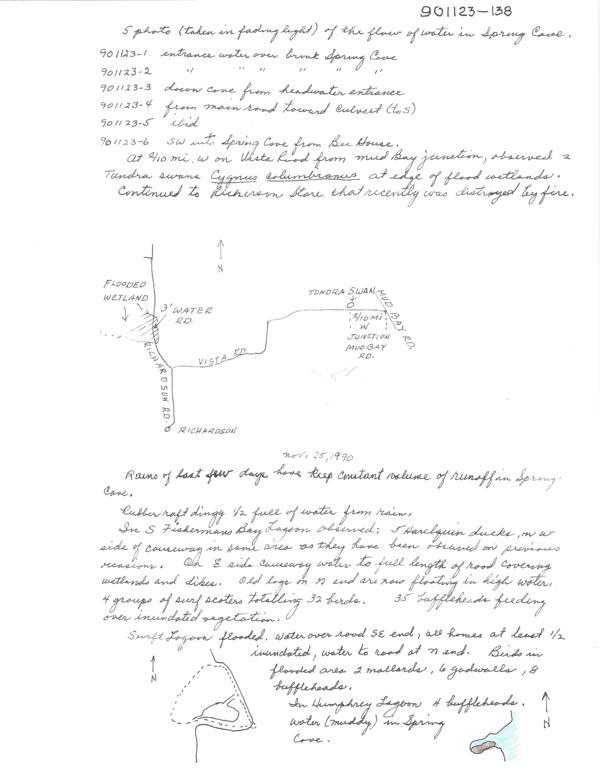 901123-138
5 photo (taken in fading light) of the flow of water in Spring Cove.
901123-1 entrance water over brink Spring Cove
901123-2 " " " " " "
901123-3 down cove from headwater entrance
901123-4 from main road toward culvert (to S)
901123-5 ibid
901123-6 SW into Spring Cove from Bee House.
At 2/10 mi. W on Vista Road from mud Bay junction, observed 2
Tundra swans Cygnus columbianus at edge of flood wetlands.
Continued to Richerson Store that recently was distroyed by fire.
N
FLOODED
WETLAND
3' WATER
RD.
TUNDRA SWAN
MUD BAY RD.
2/10 Mi
W
JUNCTION
MUD BAY
RD.
VISTA RD.
RICHARDSON RD.
RICHARDSON
nov. 25, 1990
Rains of last few days have keep constant volume of runoff in Spring
Cove.
Rubber raft dingy 1/2 full of water from rain.
In S Fishermans Bay Lagoon observed: 5 Harelquin ducks, on W
side of causeway in same area as they have been observed on previous
occasions. On E side causeway water to full length of road covering
wetlands and dikes. Old logs on n end are now floating in high water,
4 groups of surf scoters totalling 32 birds. 35 buffleheads feeding
over inundated vegetation.
Swift Lagoon flooded. Water over road SE end, all homes at least 1/2
inundated, water to road at n end. Birds in
flooded area 2 mallards, 6 gadwalls, 8
buffleheads.
In Humphrey Lagoon 4 buffleheads.
Water (muddy) in Spring
Cove.
N
N